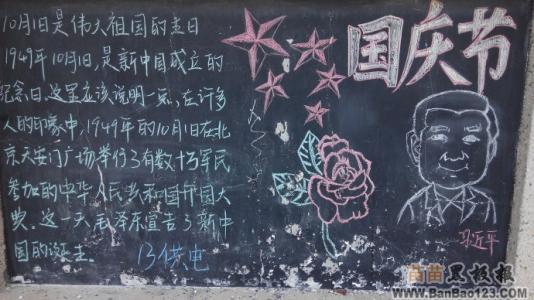 10月1日是伟大祖国的生日
1949年10月1日,是新中国成立的
纪念日。这里应该说明一点,在许多
人的印象中,1949年的10月1日在北
京天安门广场举行了有数十万军民
参加的中华人民共和国开国大
典。这一天毛泽东宣告了新中
国的诞生。
13供电
国庆节
习近平
苗苗黑板报
www.BanBao123.com